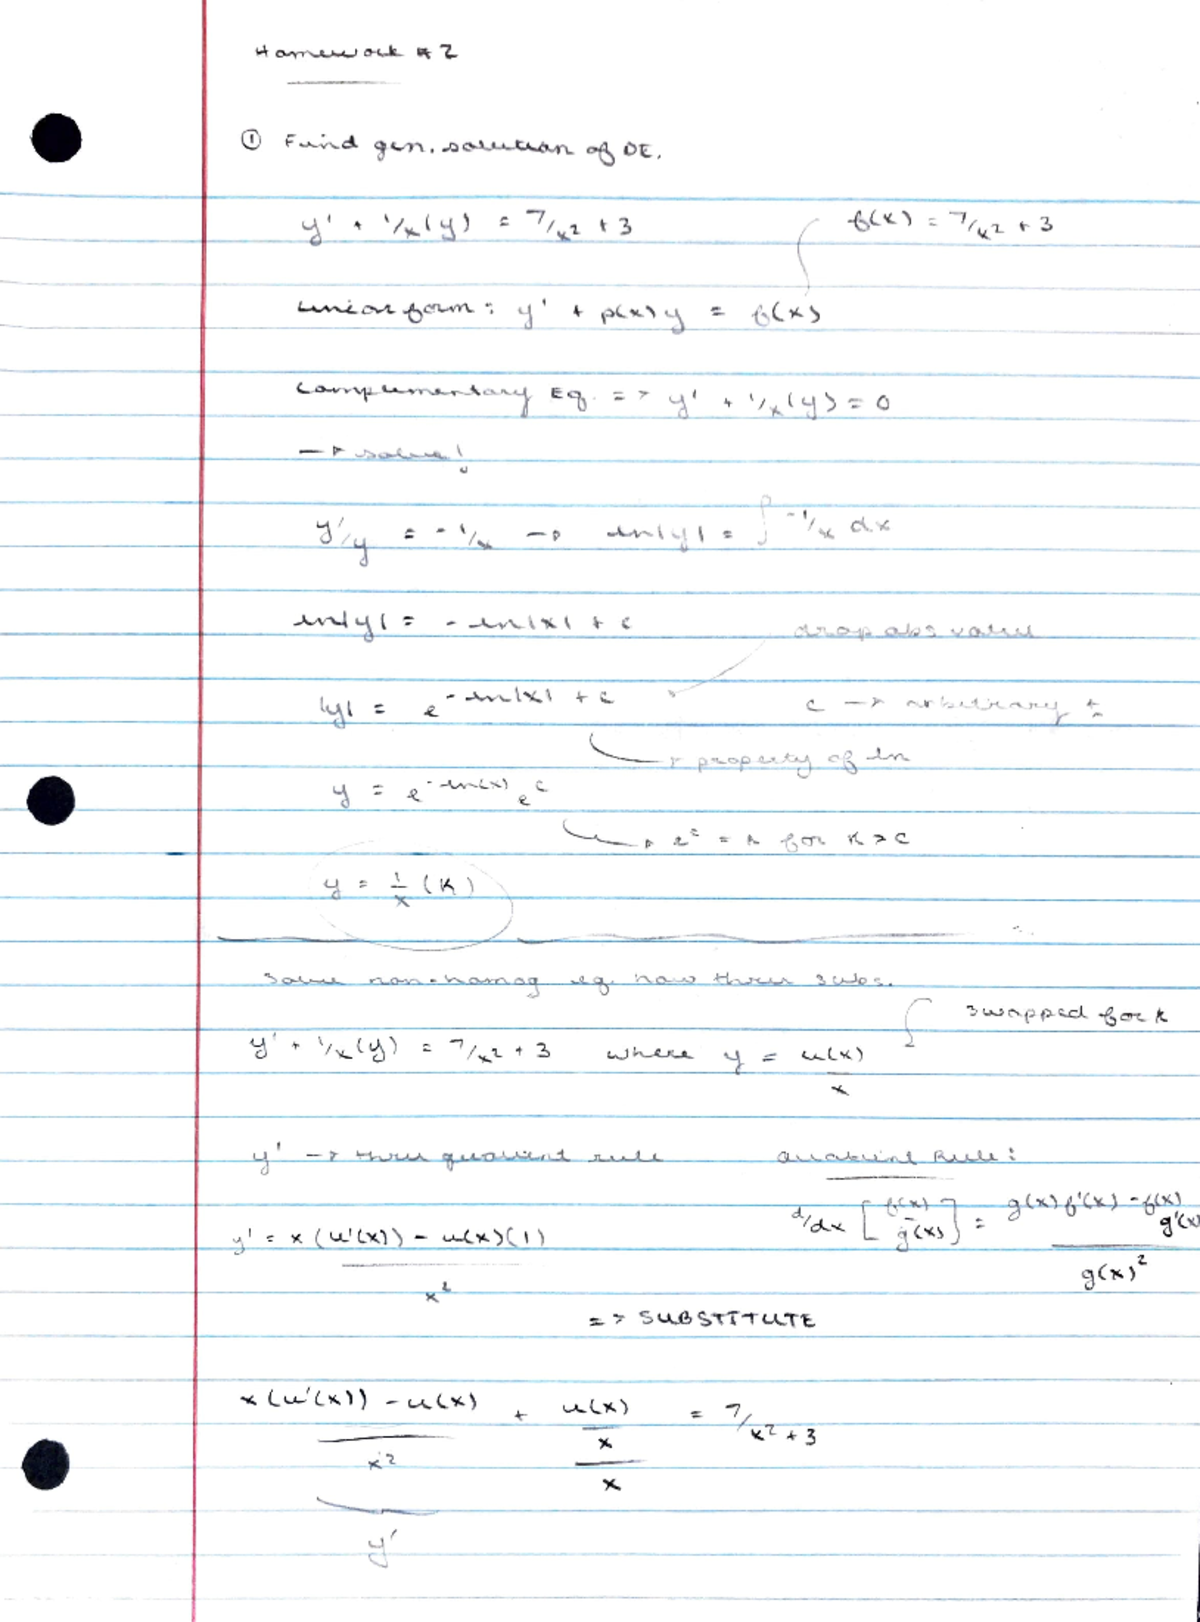 Homework #2
① Find gen. solution of DE.
y' + 1/x(y) = 7/x² + 3
f(x) = 7/x² + 3
linear form: y' + p(x)y = f(x)
Complementary Eq. => y' + 1/x(y) = 0
→ solve!
y'/y = -1/x → ln|y| = ∫ -1/x dx
ln|y| = -ln|x| + c
drop abs value
|y| = e^(-ln|x| + c)
c → arbitrary ±
→ property of ln
y = e^(-ln(x)) e^c
→ e^c = k for k > c
y = 1/x (K)
Solve non-homog eq. now thru subs.
swapped for k
y' + 1/x(y) = 7/x² + 3 where y = u(x)/x
y' → thru quotient rule
Quotient Rule:
d/dx [f(x)/g(x)] = g(x)f'(x) - f(x)g'(x) / g(x)²
y' = x(u'(x)) - u(x)(1) / x²
=> SUBSTITUTE
x(u'(x)) - u(x) / x² + u(x)/x / x = 7/x² + 3
y'